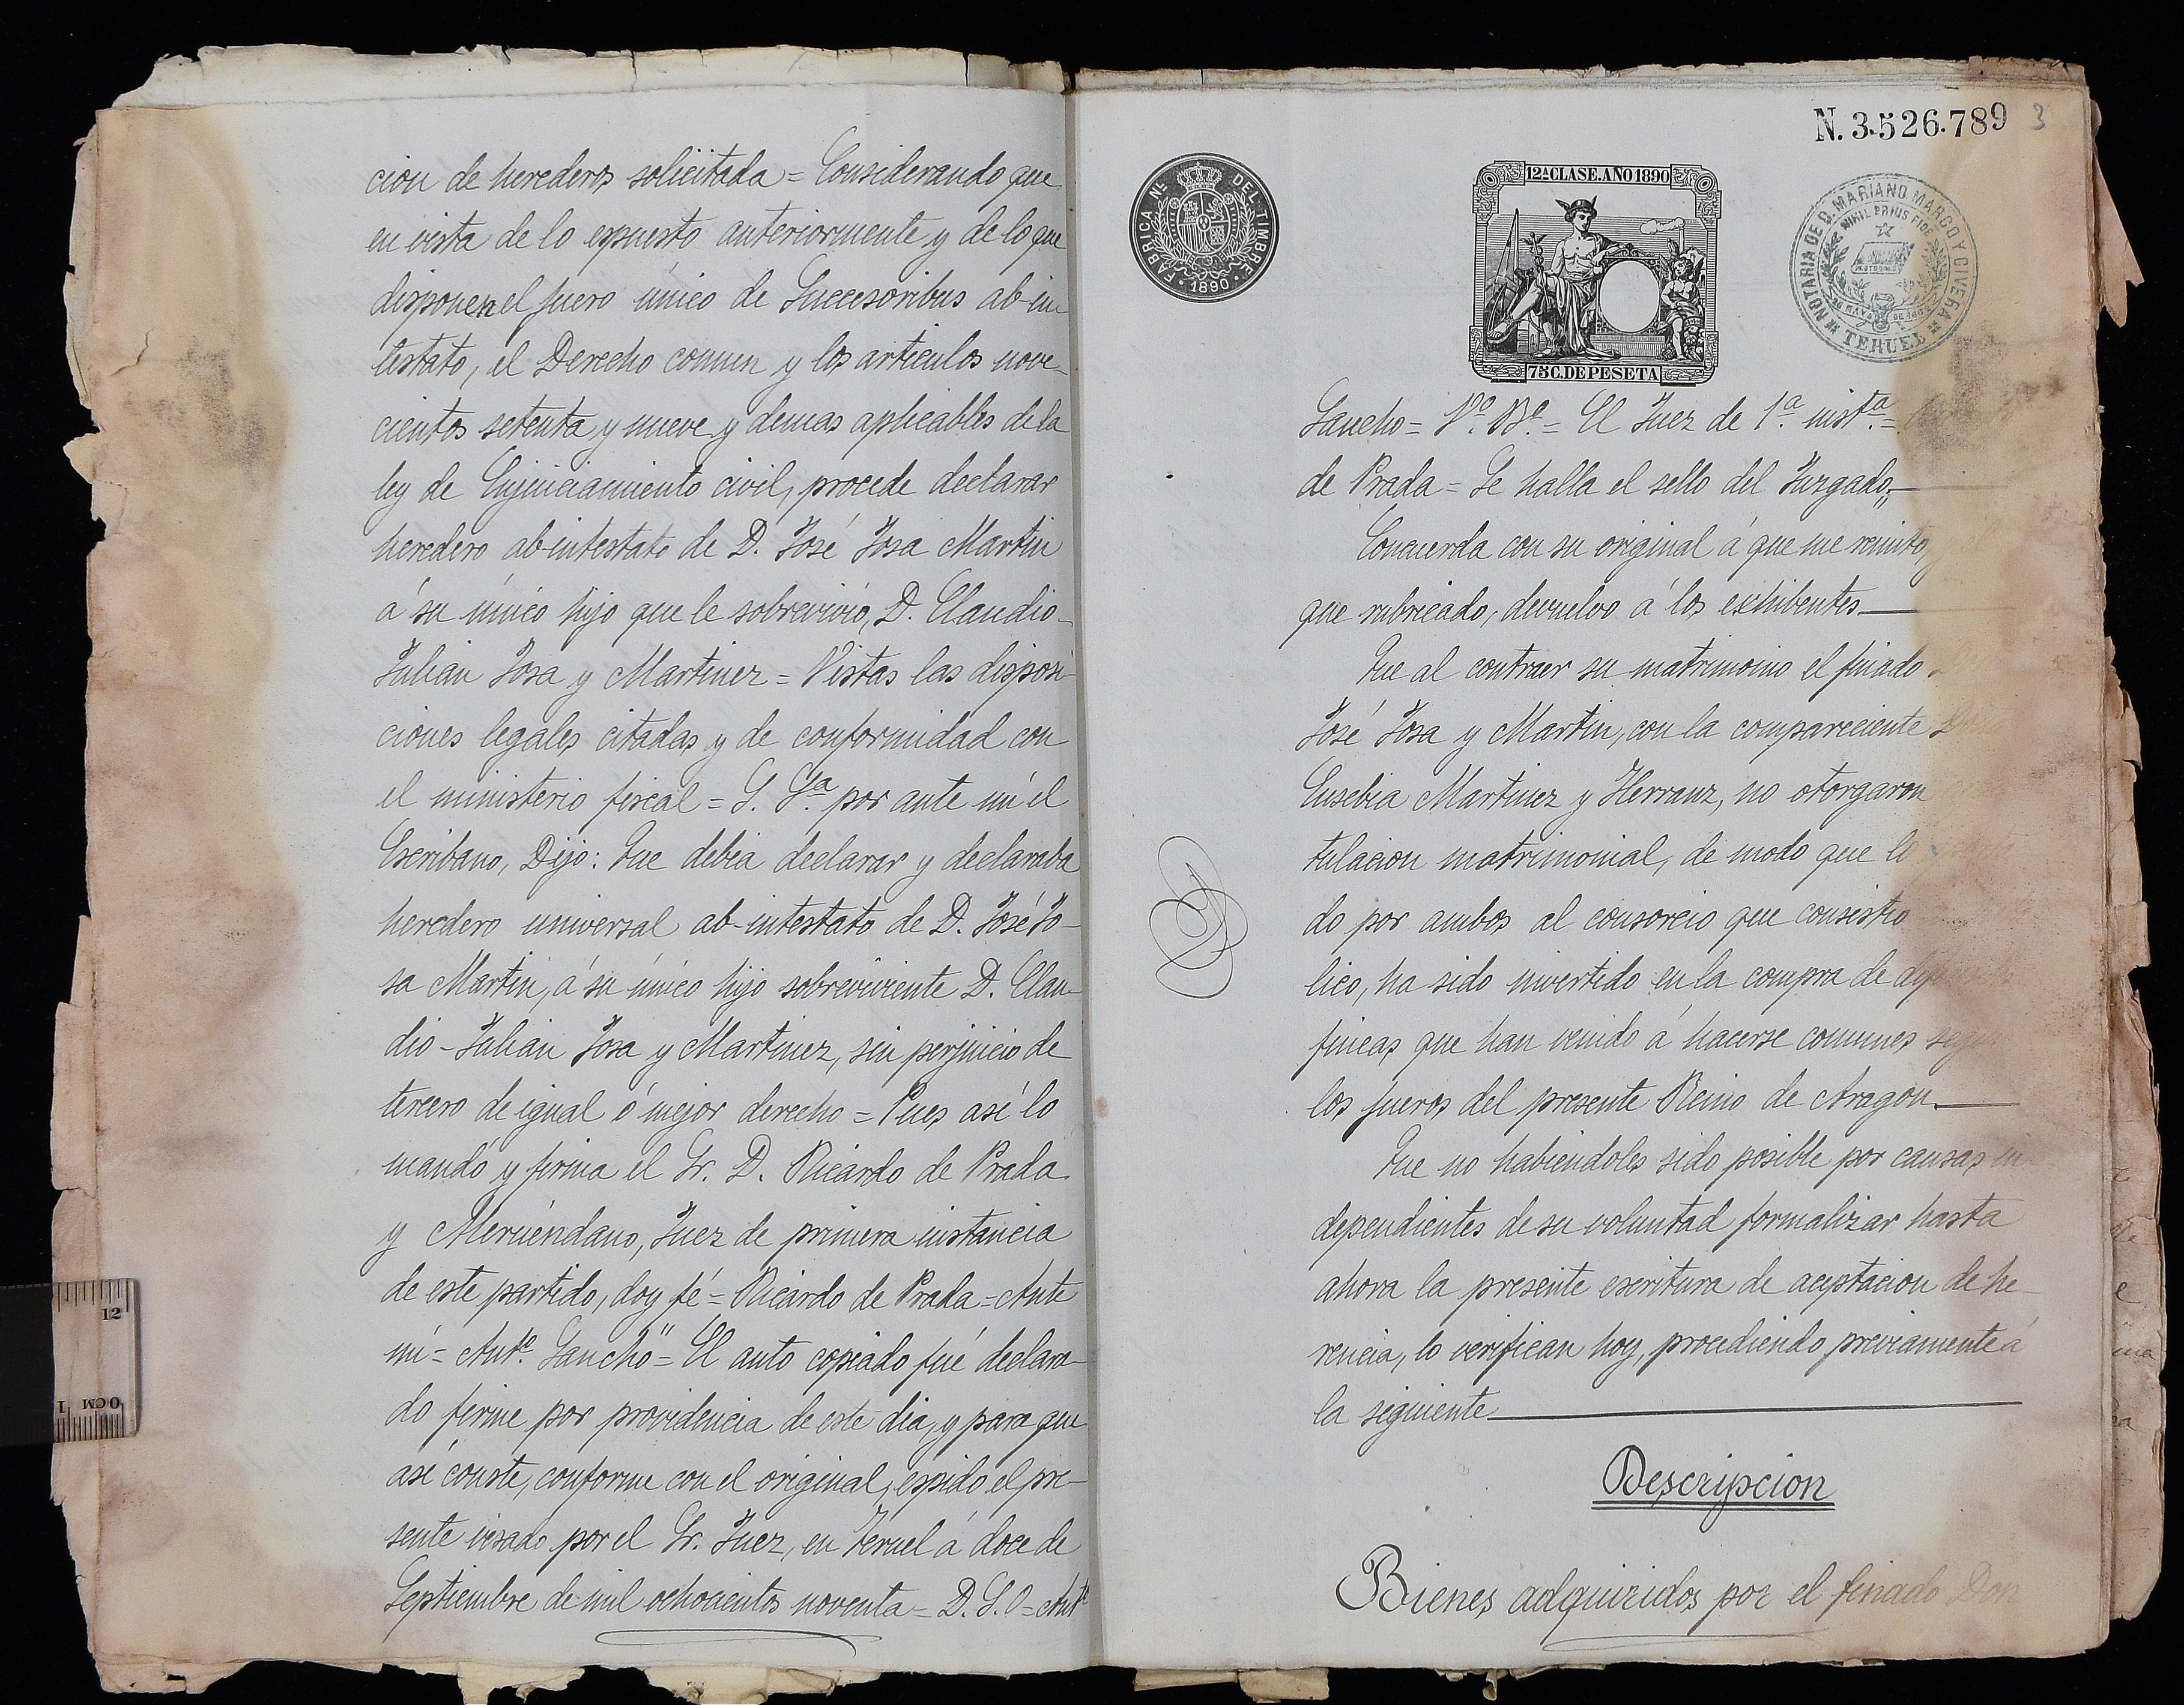 cion de herederos soliïtada = Considerando que
en vista de lo espuesto anteriormente y de lo que
disponen el fuero único de Succesoribus ab-in
testato, el Derecho comun y los articulos nove-
cientos setenta y nueve y demas aplicables de la
ley de Enjuiciamiento civil, procede declarar
heredero ab-intestato de D. José Josa Martin
á su único hijo que le sobrevivió, D. Claudio-
Julian Josa y Martinez = Vistas las disposi-
ciones legales citadas y de conformidad con
el ministerio fiscal = S. Sª por ante mí el
Escribano, Dijo: Que debia declarar y declaraba
heredero universal ab-intestato de D. José Jo-
sa Martin, á su único hijo sobreviviente D. Clau-
dio-Julian Josa y Martinez, sin perjuicio de
tercero de igual ó mejor derecho = Pues así lo
mandó y firma el Sr. D. Ricardo de Prada
y Meruéndano, Juez de primera instancia
de este partido, doy fé = Ricardo de Prada = Ante
mí = Antº. Sancho" = El auto copiado fué declara-
do firme por providencia de este dia, y para que
así conste, conforme con el original, espido el pre-
sente visado por el Sr. Juez, en Teruel á doce de
Septiembre de mil ochocientos noventa = D. S. O = Antº
N. 3.526.789 3
FABRICA Nˡ DEL TIMBRE
1890
12ª CLASE. AÑO 1890
75 C. DE PESETA
NOTARIA DE D. MARIANO MARCO Y CIVERA
NIHIL PRIUS FIDE
TERUEL
Sancho = Vº. Bº. = El Juez de 1ª. instª. =
de Prada = Se halla el sello del Juzgado."
Concuerda con su original á que me remito,
que rubricado, devuelvo á los exhibentes
Que al contraer su matrimonio el finado
José Josa y Martin, con la compareciente
Eusebia Martinez y Herranz, no otorgaron
tulacion matrimonial, de modo que lo
do por ambos al consorcio que consistio
lico, ha sido invertido en la compra de
fincas que han venido á hacerse comunes segun
los fueros del presente Reino de Aragon.
Que no habiendoles sido posible por causas in
dependientes de su voluntad formalizar hasta
ahora la presente escritura de aceptacion de he-
rencia, lo verifican hoy, procediendo previamente á
la siguiente
Descripcion
Bienes adquiridos por el finado Don